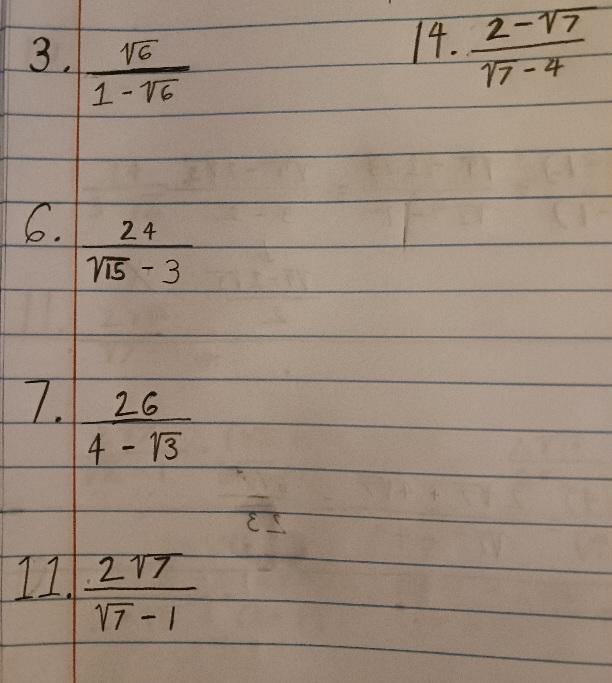 3. √6 / (1 - √6)
14. (2 - √7) / (√7 - 4)
6. 24 / (√15 - 3)
7. 26 / (4 - √3)
11. 2√7 / (√7 - 1)